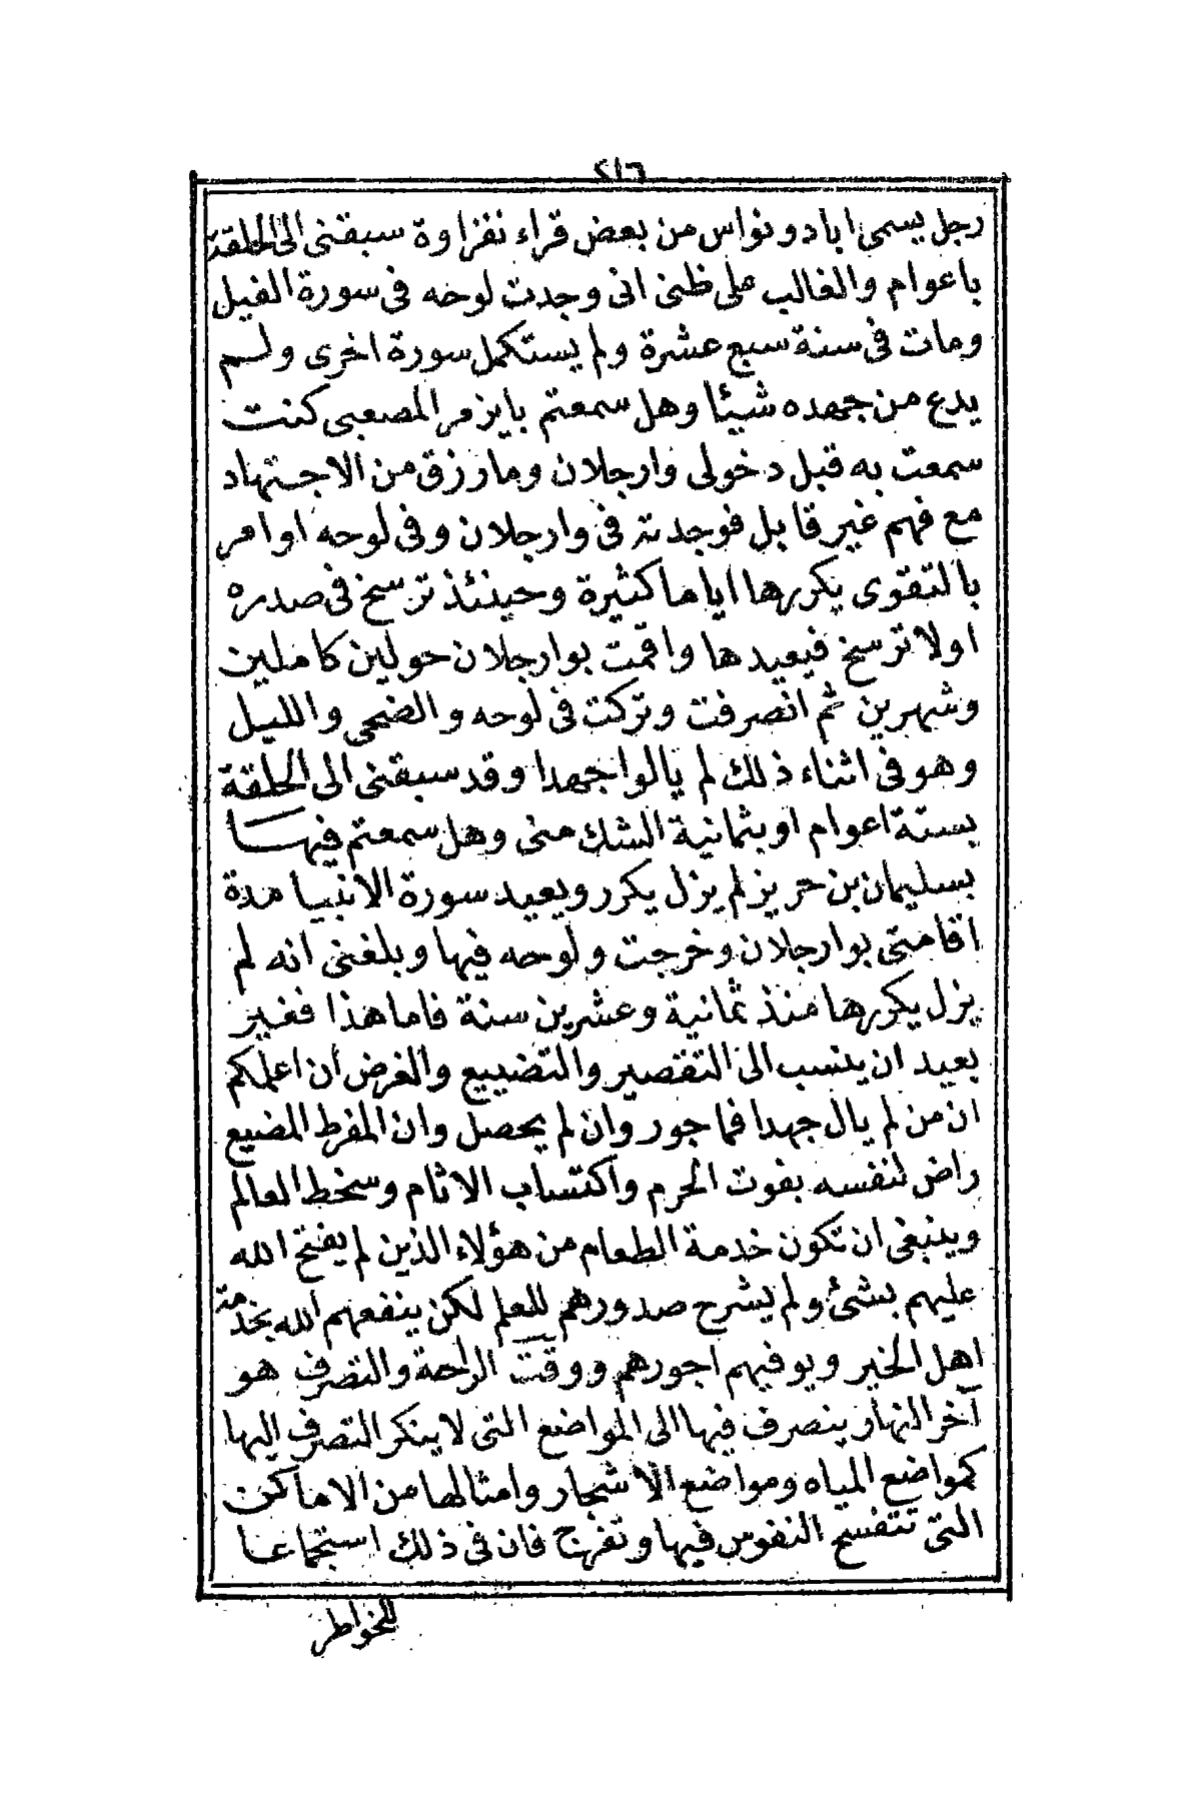 ٢١٦
رجل يسمى اباد ونواس من بعض قراء نفزاوة سبقنى الى الحلقة
باعوام والغالب على ظنى انى وجدت لوحه فى سورة الفيل
ومات فى سنة سبع عشرة ولم يستكمل سورة اخرى ولم
يدع من جهده شيئا وهل سمعتم بايزمر المصعبى كنت
سمعت به قبل دخولى وارجلان ومارزق من الاجتهاد
مع فهم غير قابل فوجدته فى وارجلان وفى لوحه اوامر
بالتقوى يكررها اياما كثيرة وحينئذ ترسخ فى صدره
اولا ترسخ فيعيدها واقمت بوارجلان حولين كاملين
وشهرين ثم انصرفت وتركت فى لوحه والضحى والليل
وهو فى اثناء ذلك لم يالوا جهدا وقد سبقنى الى الحلقة
بستة اعوام او بثمانية الشك منى وهل سمعتم فيها
بسليمان بن حريز لم يزل يكرر ويعيد سورة الانبيا مدة
اقامتى بوارجلان وخرجت ولوحه فيها وبلغنى انه لم
يزل يكررها منذ ثمانية وعشرين سنة فاما هذا فغير
بعيد ان ينسب الى التقصير والتضييع والغرض ان اعلمكم
ان من لم يال جهدا فماجور وان لم يحصل وان المفرط المضيع
راض لنفسه بفوت الحرم واكتساب الاثام وسخط العالم
وينبغى ان تكون خدمة الطعام من هؤلاء الذين لم يفتح الله
عليهم بشئ ولم يشرح صدورهم للعلم لكن ينفعهم الله بخدمة
اهل الخير ويوفيهم اجورهم ووقت الراحة والتصرف هو
آخر النهار ينصرف فيها الى المواضع التى لا ينكر التصرف اليها
كمواضع المياه ومواضع الاشجار وامثالها من الاماكن
التى تتفسح النفوس فيها وتفرج فان فى ذلك استجماعا
للخواطر